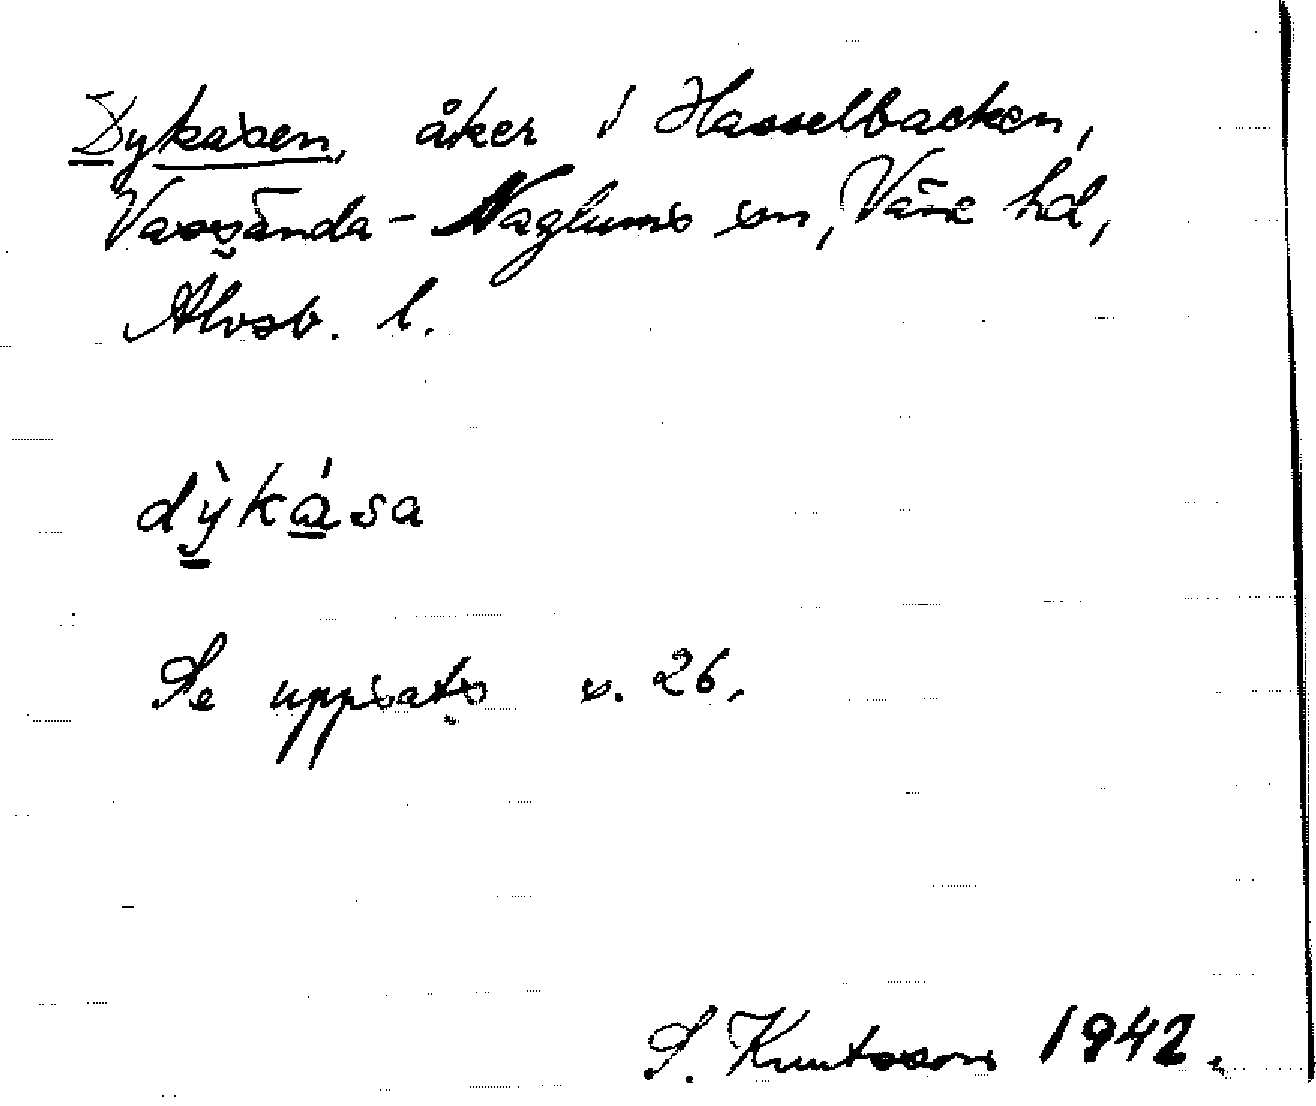 Dykasen, åker i Hasselbacken,
Vassända-Naglums sn, Väne hd,
Älvsb. l.
dỳkása
Se uppsats s. 26.
S. Knutsson 1942.